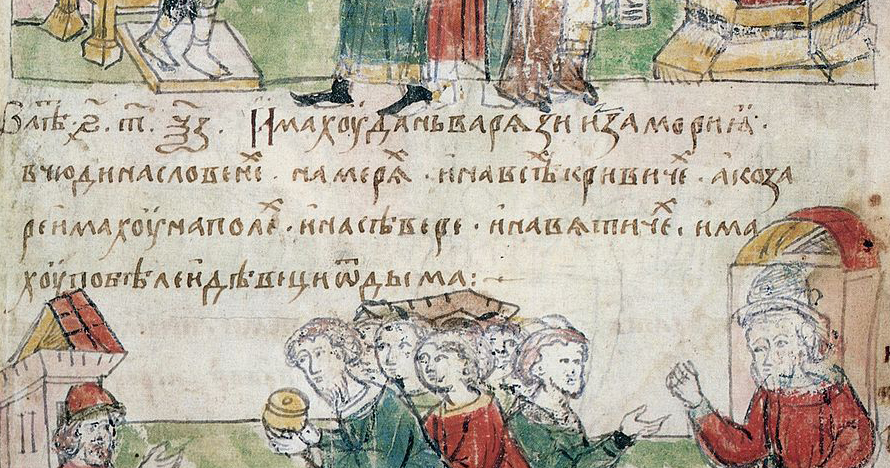 В лѣⷮ҇ · ҂ѕ҃ · т҃ · ѯ҃з · Имахоу дань варѧзи изаморніꙗ ·
в чюди на словенеⷯ · на мерѧⷯ · и на всѣⷯ кривичеⷯ · а коза
реи махоу на полеⷯ · и на сѣвере · и на вѧтичеⷯ · има
хоу по бѣлеи дѣвеци ѿ дыма :